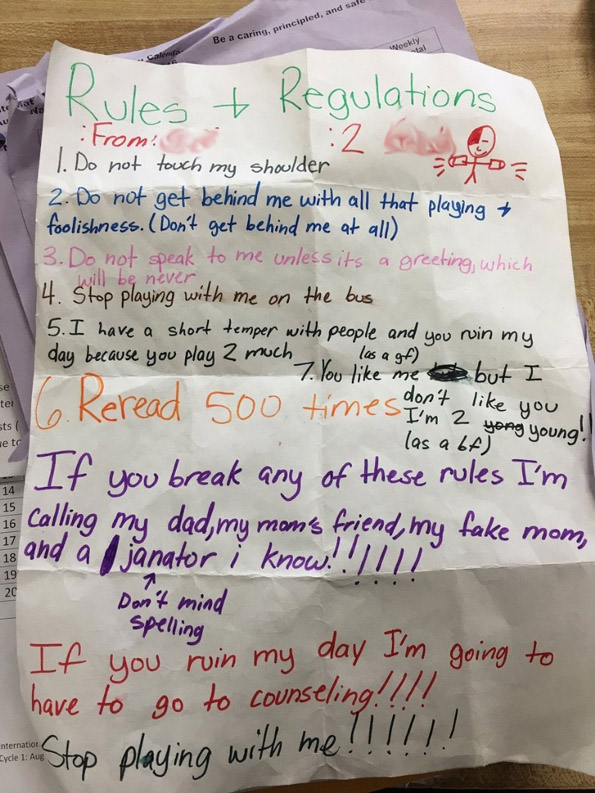 Be a caring, principled, and safe
Weekly
Rules + Regulations
:From:
:2
1. Do not touch my shoulder
2. Do not get behind me with all that playing +
foolishness. (Don't get behind me at all)
3. Do not speak to me unless its a greeting, which
will be never
4. Stop playing with me on the bus
5. I have a short temper with people and you ruin my
day because you play 2 much
(as a gf)
7. You like me but I
don't like you
I'm 2 yong young!!
(as a bf)
6. Reread 500 times
If you break any of these rules I'm
calling my dad, my mom's friend, my fake mom,
and a janator i know!!!!!!!
Don't mind
spelling
If you ruin my day I'm going to
have to go to counseling!!!!
Stop playing with me!!!!!!!
14
15
16
17
18
19
20
Cycle 1: Aug